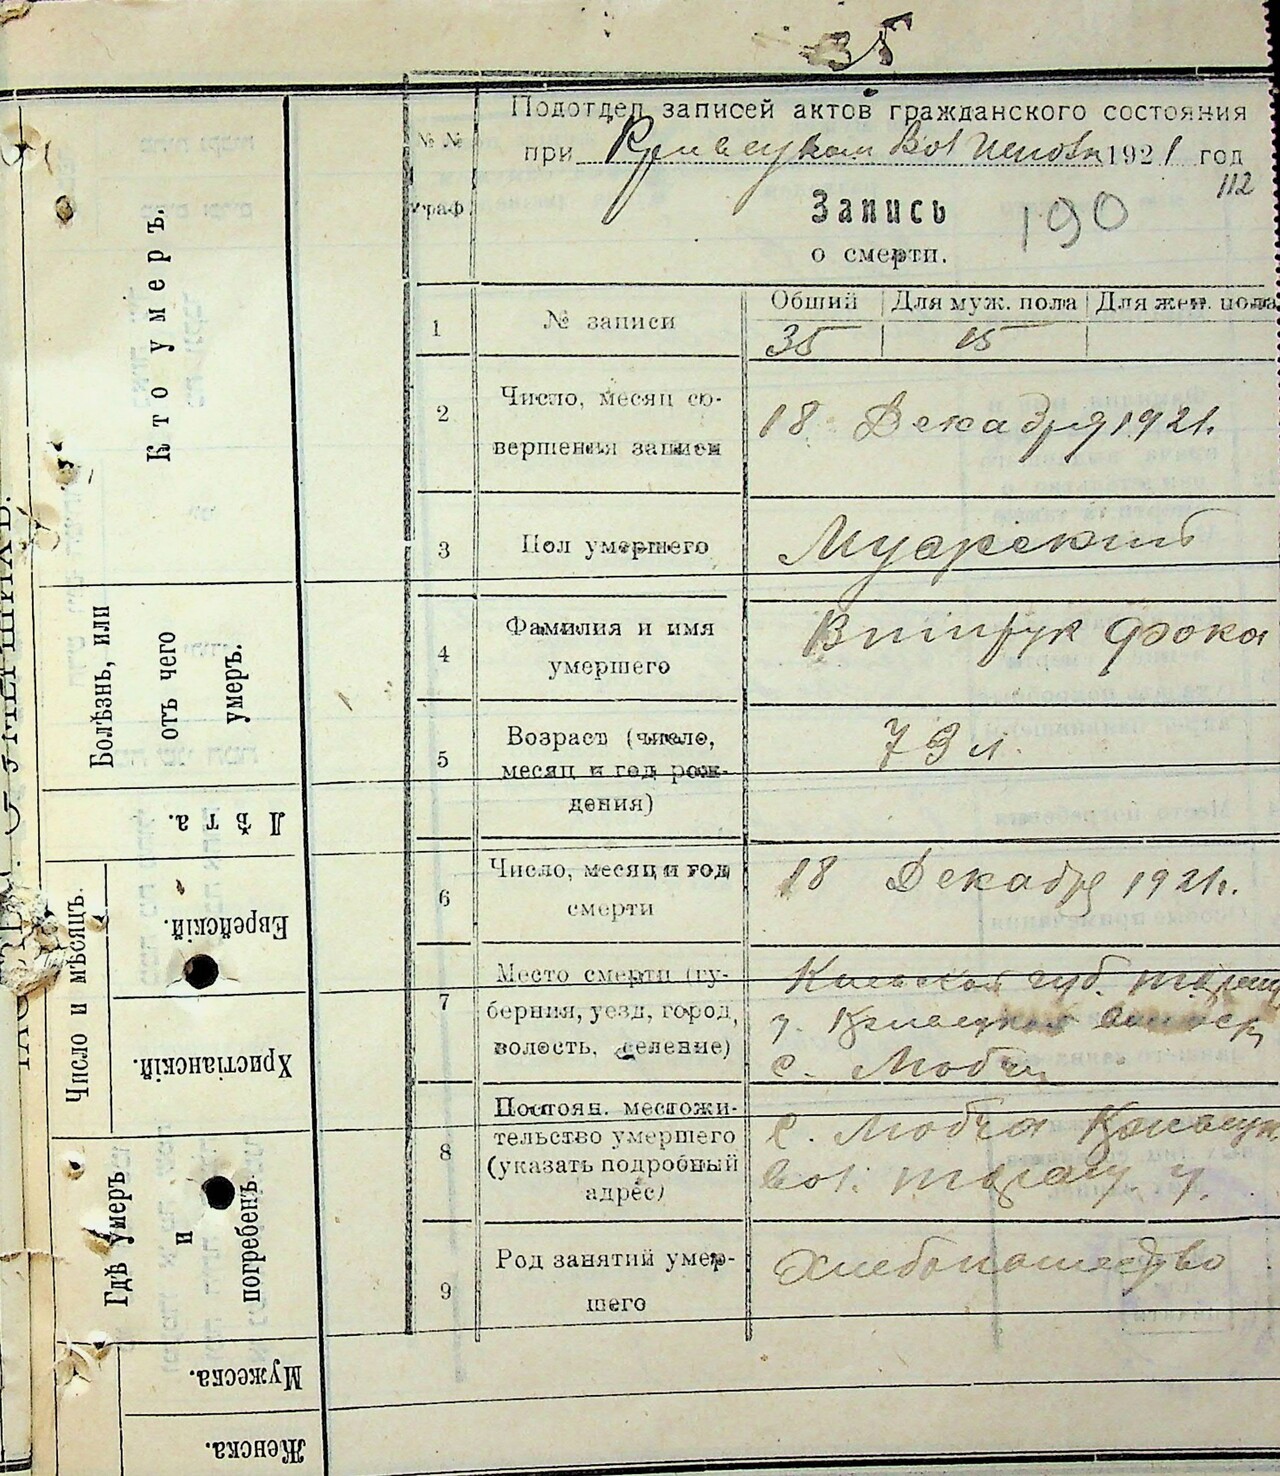 35
Подотдел записей актов гражданского состояния
при Кривецком Вол Исполк 1921 год
112
№ №
граф
Запись 190
о смерти.
1 № записи
Общий Для муж. пола Для жен. пола
35 15
2 Число, месяц со-
вершения записи
18 Декабря 1921г.
3 Пол умершего
Мужский
4 Фамилия и имя
умершего
Витрук Фока
5 Возраст (число,
месяц и год рож-
дения)
73 л.
6 Число, месяц и год
смерти
18 Декабр 1921г.
7 Место смерти (гу-
берния, уезд, город,
волость, селение)
Киевская губ. Таращ
у.
с. Любча
8 Постоян. местожи-
тельство умершего
(указать подробный
адрес)
с. Любча
вол. Таращ. у.
9 Род занятий умер-
шего
Хлебопашество
Кто умеръ.
Болѣзнь, или
отъ чего
умеръ.
Лѣта.
Число и мѣсяцъ.
Еврейскій.
Христіанскій.
Гдѣ умеръ
и
погребенъ.
Мужеска.
Женска.